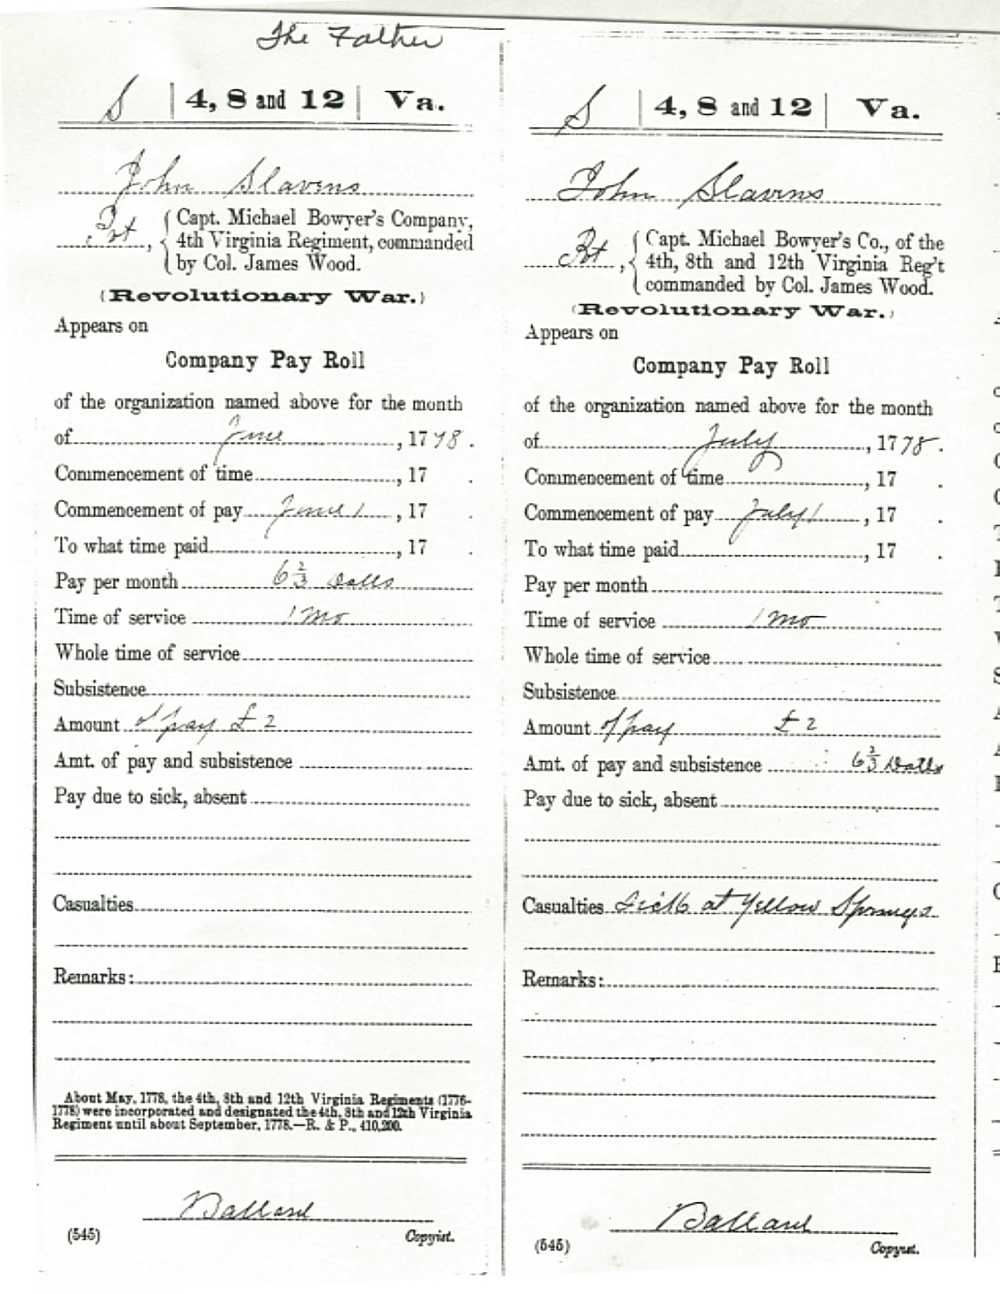 The Father
S | 4, 8 and 12 | Va.
John Slavens
Pvt, { Capt. Michael Bowyer's Company,
4th Virginia Regiment, commanded
by Col. James Wood.
(Revolutionary War.)
Appears on
Company Pay Roll
of the organization named above for the month
of June, 1778.
Commencement of time, 17 .
Commencement of pay June 1, 17 .
To what time paid, 17 .
Pay per month 6 2/3 Dolls
Time of service 1 mo
Whole time of service
Subsistence
Amount of pay £ 2
Amt. of pay and subsistence
Pay due to sick, absent
Casualties
Remarks:
About May, 1778, the 4th, 8th and 12th Virginia Regiments (1776-
1778) were incorporated and designated the 4th, 8th and 12th Virginia
Regiment until about September, 1778.—R. & P., 410,200.
Ballard
(545) Copyist.
S | 4, 8 and 12 | Va.
John Slavins
Pvt, { Capt. Michael Bowyer's Co., of the
4th, 8th and 12th Virginia Reg't
commanded by Col. James Wood.
(Revolutionary War.)
Appears on
Company Pay Roll
of the organization named above for the month
of July, 1778.
Commencement of time, 17 .
Commencement of pay July 1, 17 .
To what time paid, 17 .
Pay per month
Time of service 1 mo
Whole time of service
Subsistence
Amount of pay £ 2
Amt. of pay and subsistence 6 2/3 Dolls
Pay due to sick, absent
Casualties Sick at Yellow Springs
Remarks:
Ballard
(545) Copyist.